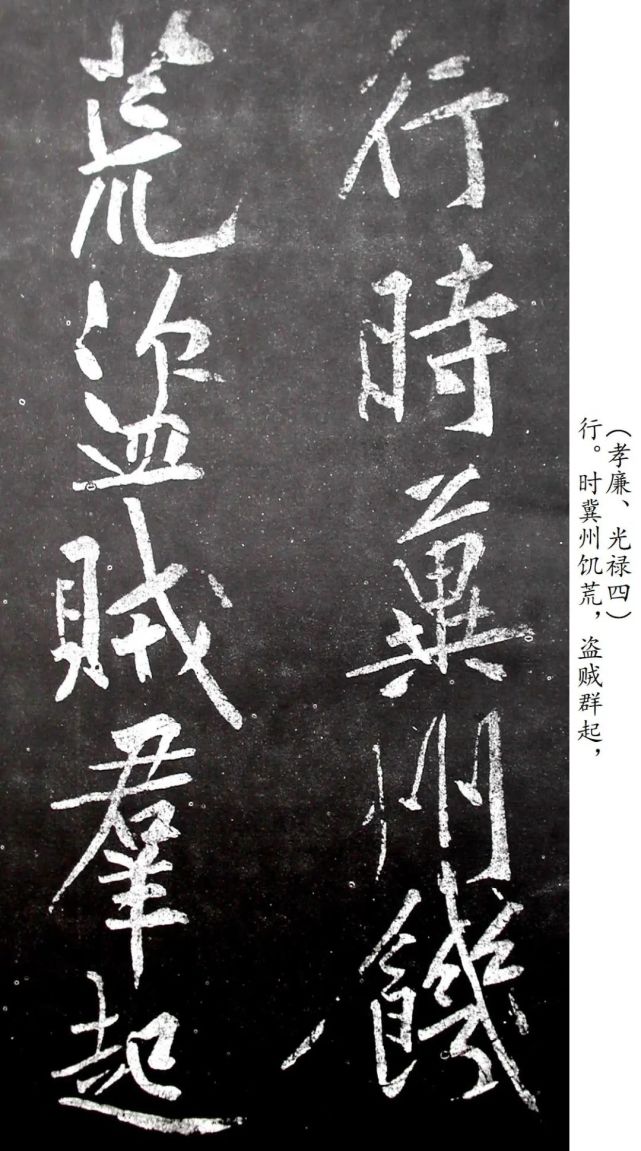 行時冀州饑
荒盜賊羣起
（孝廉、光禄四）
行。时冀州饥荒，盗贼群起，